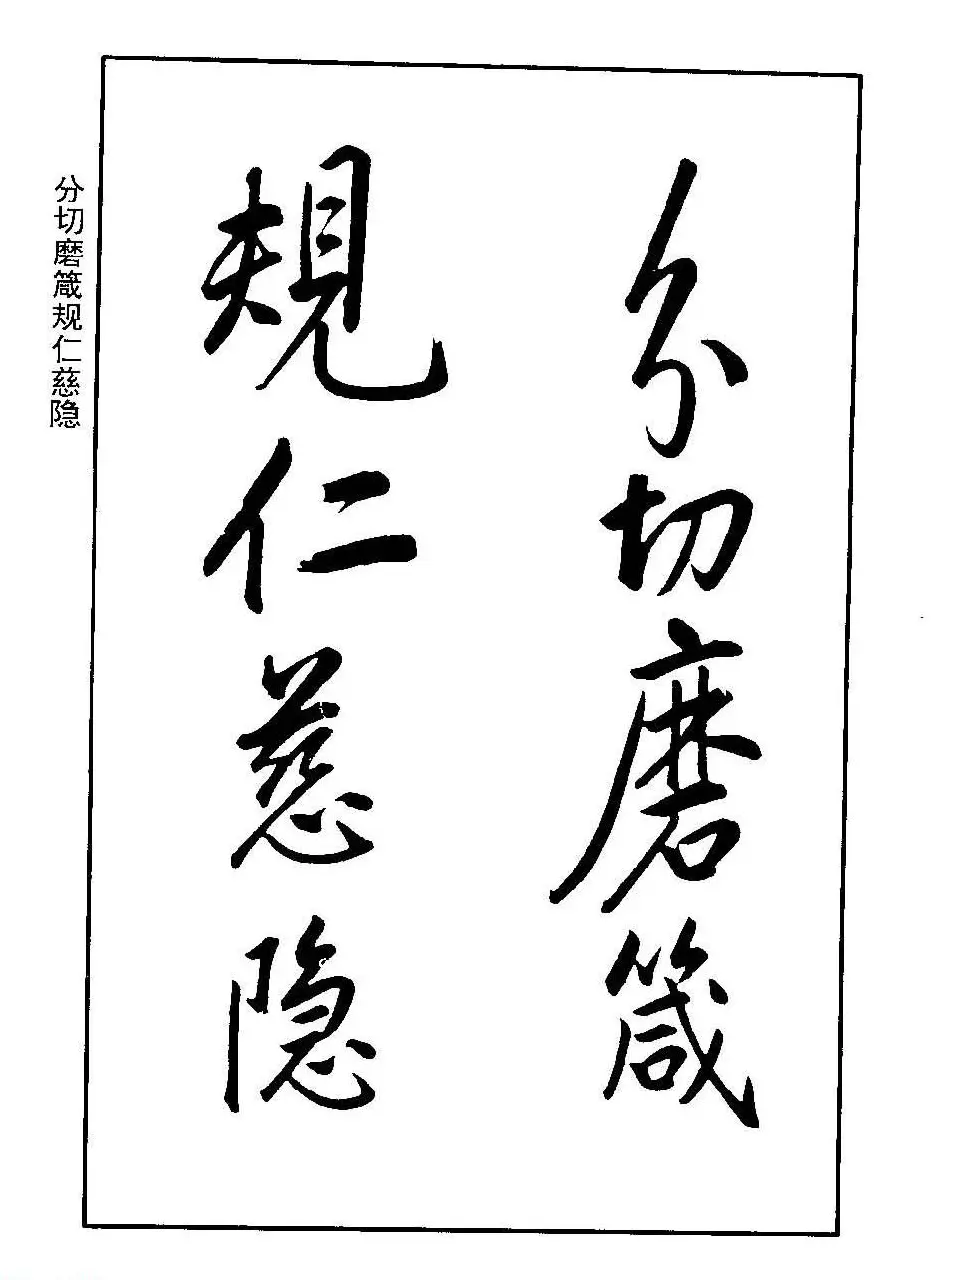 分切磨箴
規仁慈隐
分切磨箴规仁慈隐